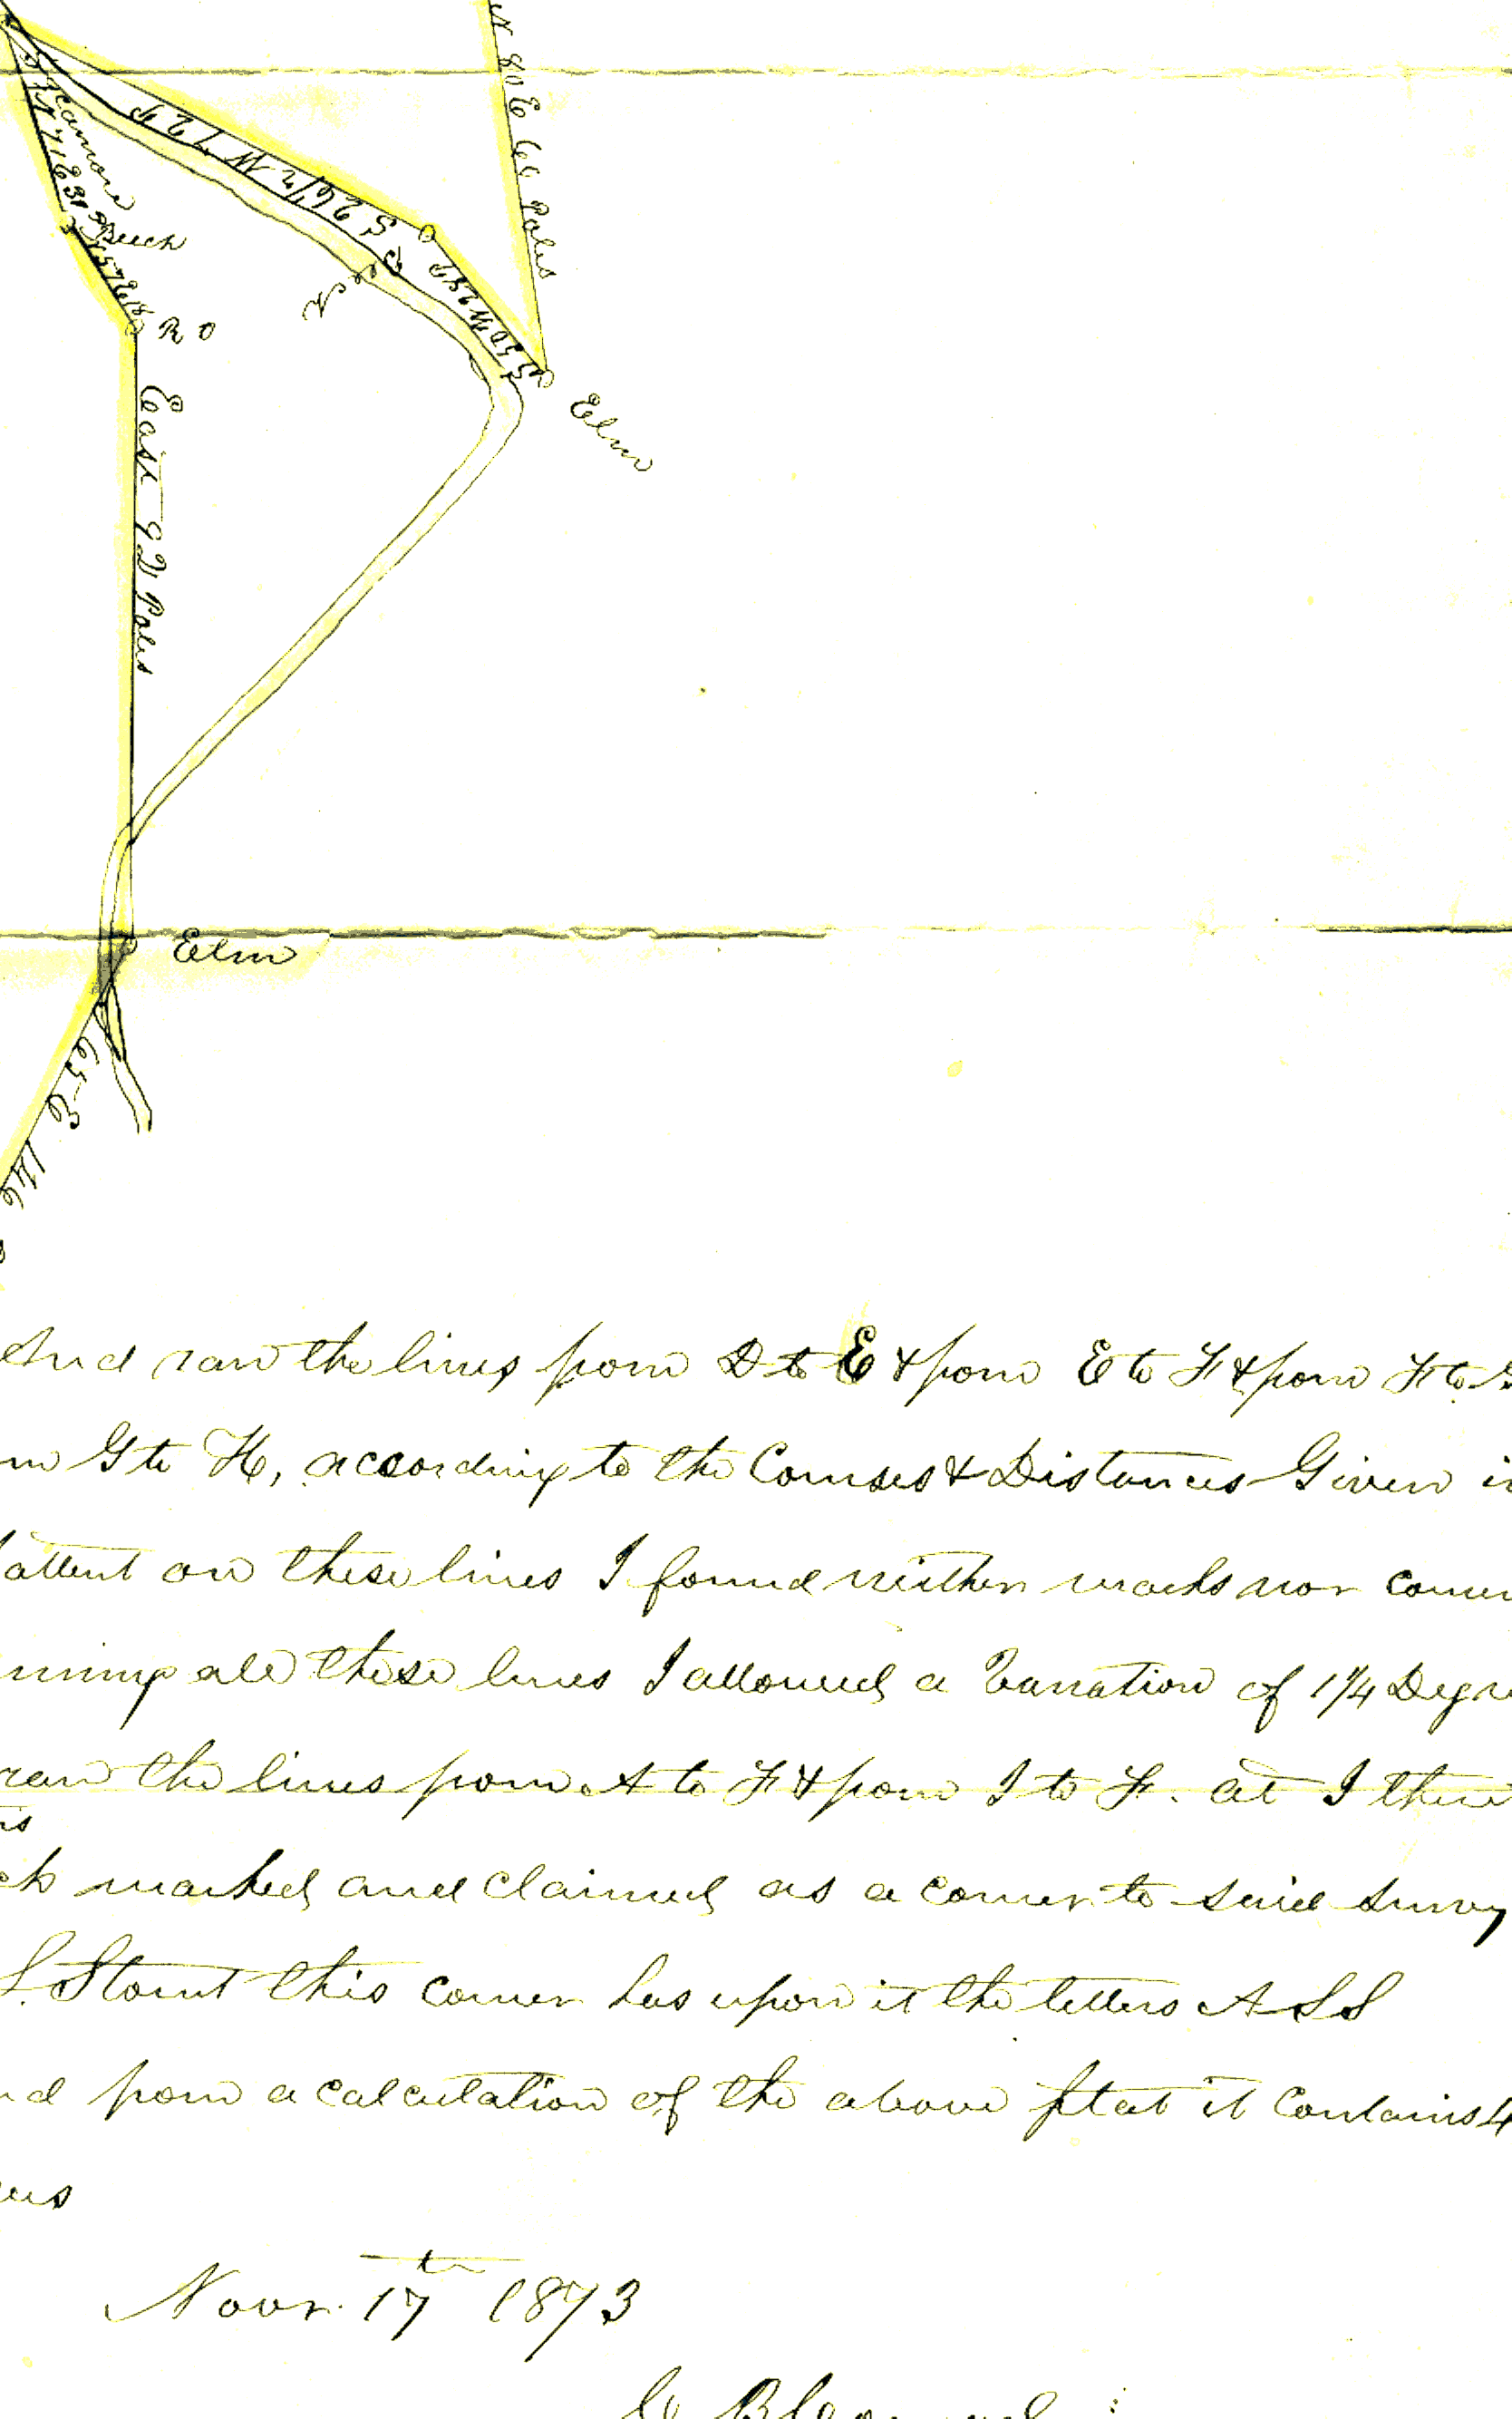 N 80 E 66 Poles
S 26 1/2 W 72 P
Sycamore
N 71 E 31 P
Beech
N 57 E 18
R O
S 50 W 29 P
Creek
Elm
East 92 Poles
Elm
65 E 146
And ran the lines from D to E & from E to F & from F to G
m G to H, according to the Courses & Distances Given in
attent on these lines I found neither marks nor corner
nning all these lines I allowed a Variation of 1 1/4 Degre
ran the lines from A to F & from I to F. at I there
is
ch marked and claimed as a corner to said Survey
S. Stout this corner has upon it the letters A S S
nd from a calculation of the above plat it contains 4
Novr. 17th 1873